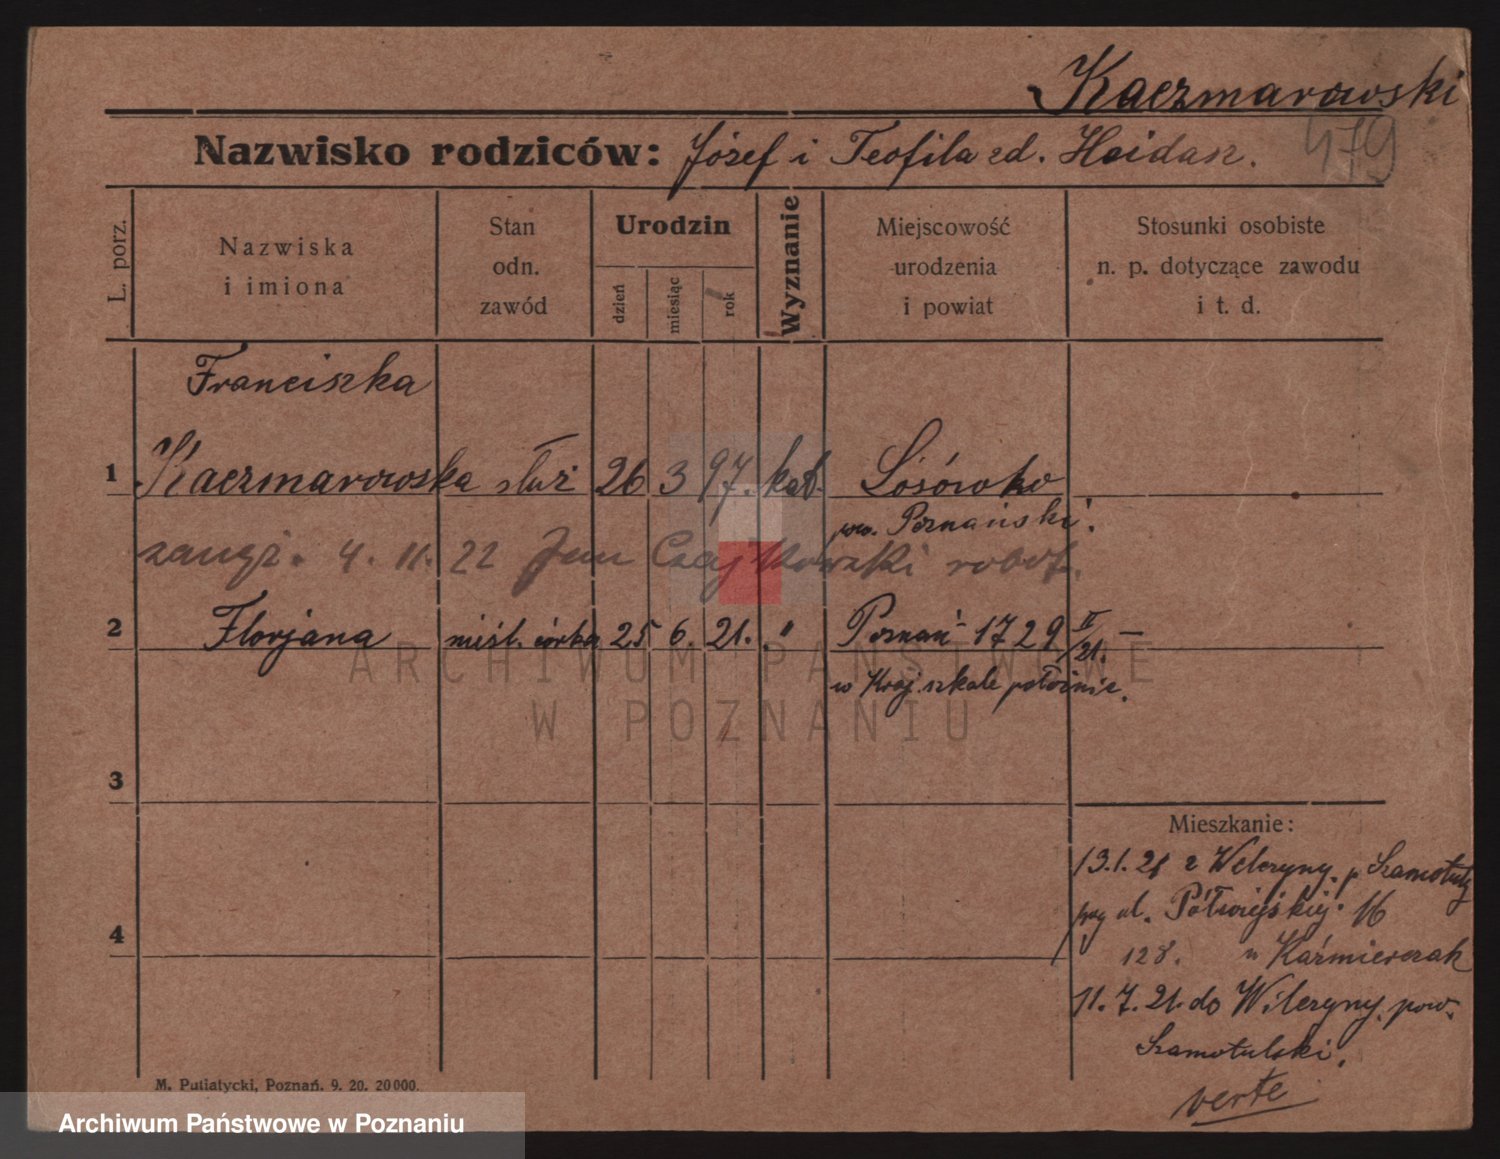 Kaczmarowski
Nazwisko rodziców: Józef i Teofila zd. Hoidasz.
479
L. porz.
Nazwiska
i imiona
Stan
odn.
zawód
Urodzin
dzień
miesiąc
rok
Wyznanie
Miejscowość
urodzenia
i powiat
Stosunki osobiste
n. p. dotyczące zawodu
i t. d.
Franciszka
1 Kaczmarowska służ 26 3 97. kat.
pow. Poznański.
4. 11. 22 Jan Czajkowski robot.
2 Florjana nieśl. córka 25 6. 21. " Poznań 1729 II/21. —
w Kraj. szkole położnic.
3
4
Mieszkanie:
13.1.21 z p. Szamotuły
ul. Półwiejskiej. 16
128. u Kaźmierczak
11. 7. 21. do pow.
Szamotulski.
verte
M. Putiatycki, Poznań. 9. 20. 20000.
ARCHIWUM PAŃSTWOWE
W POZNANIU
Archiwum Państwowe w Poznaniu